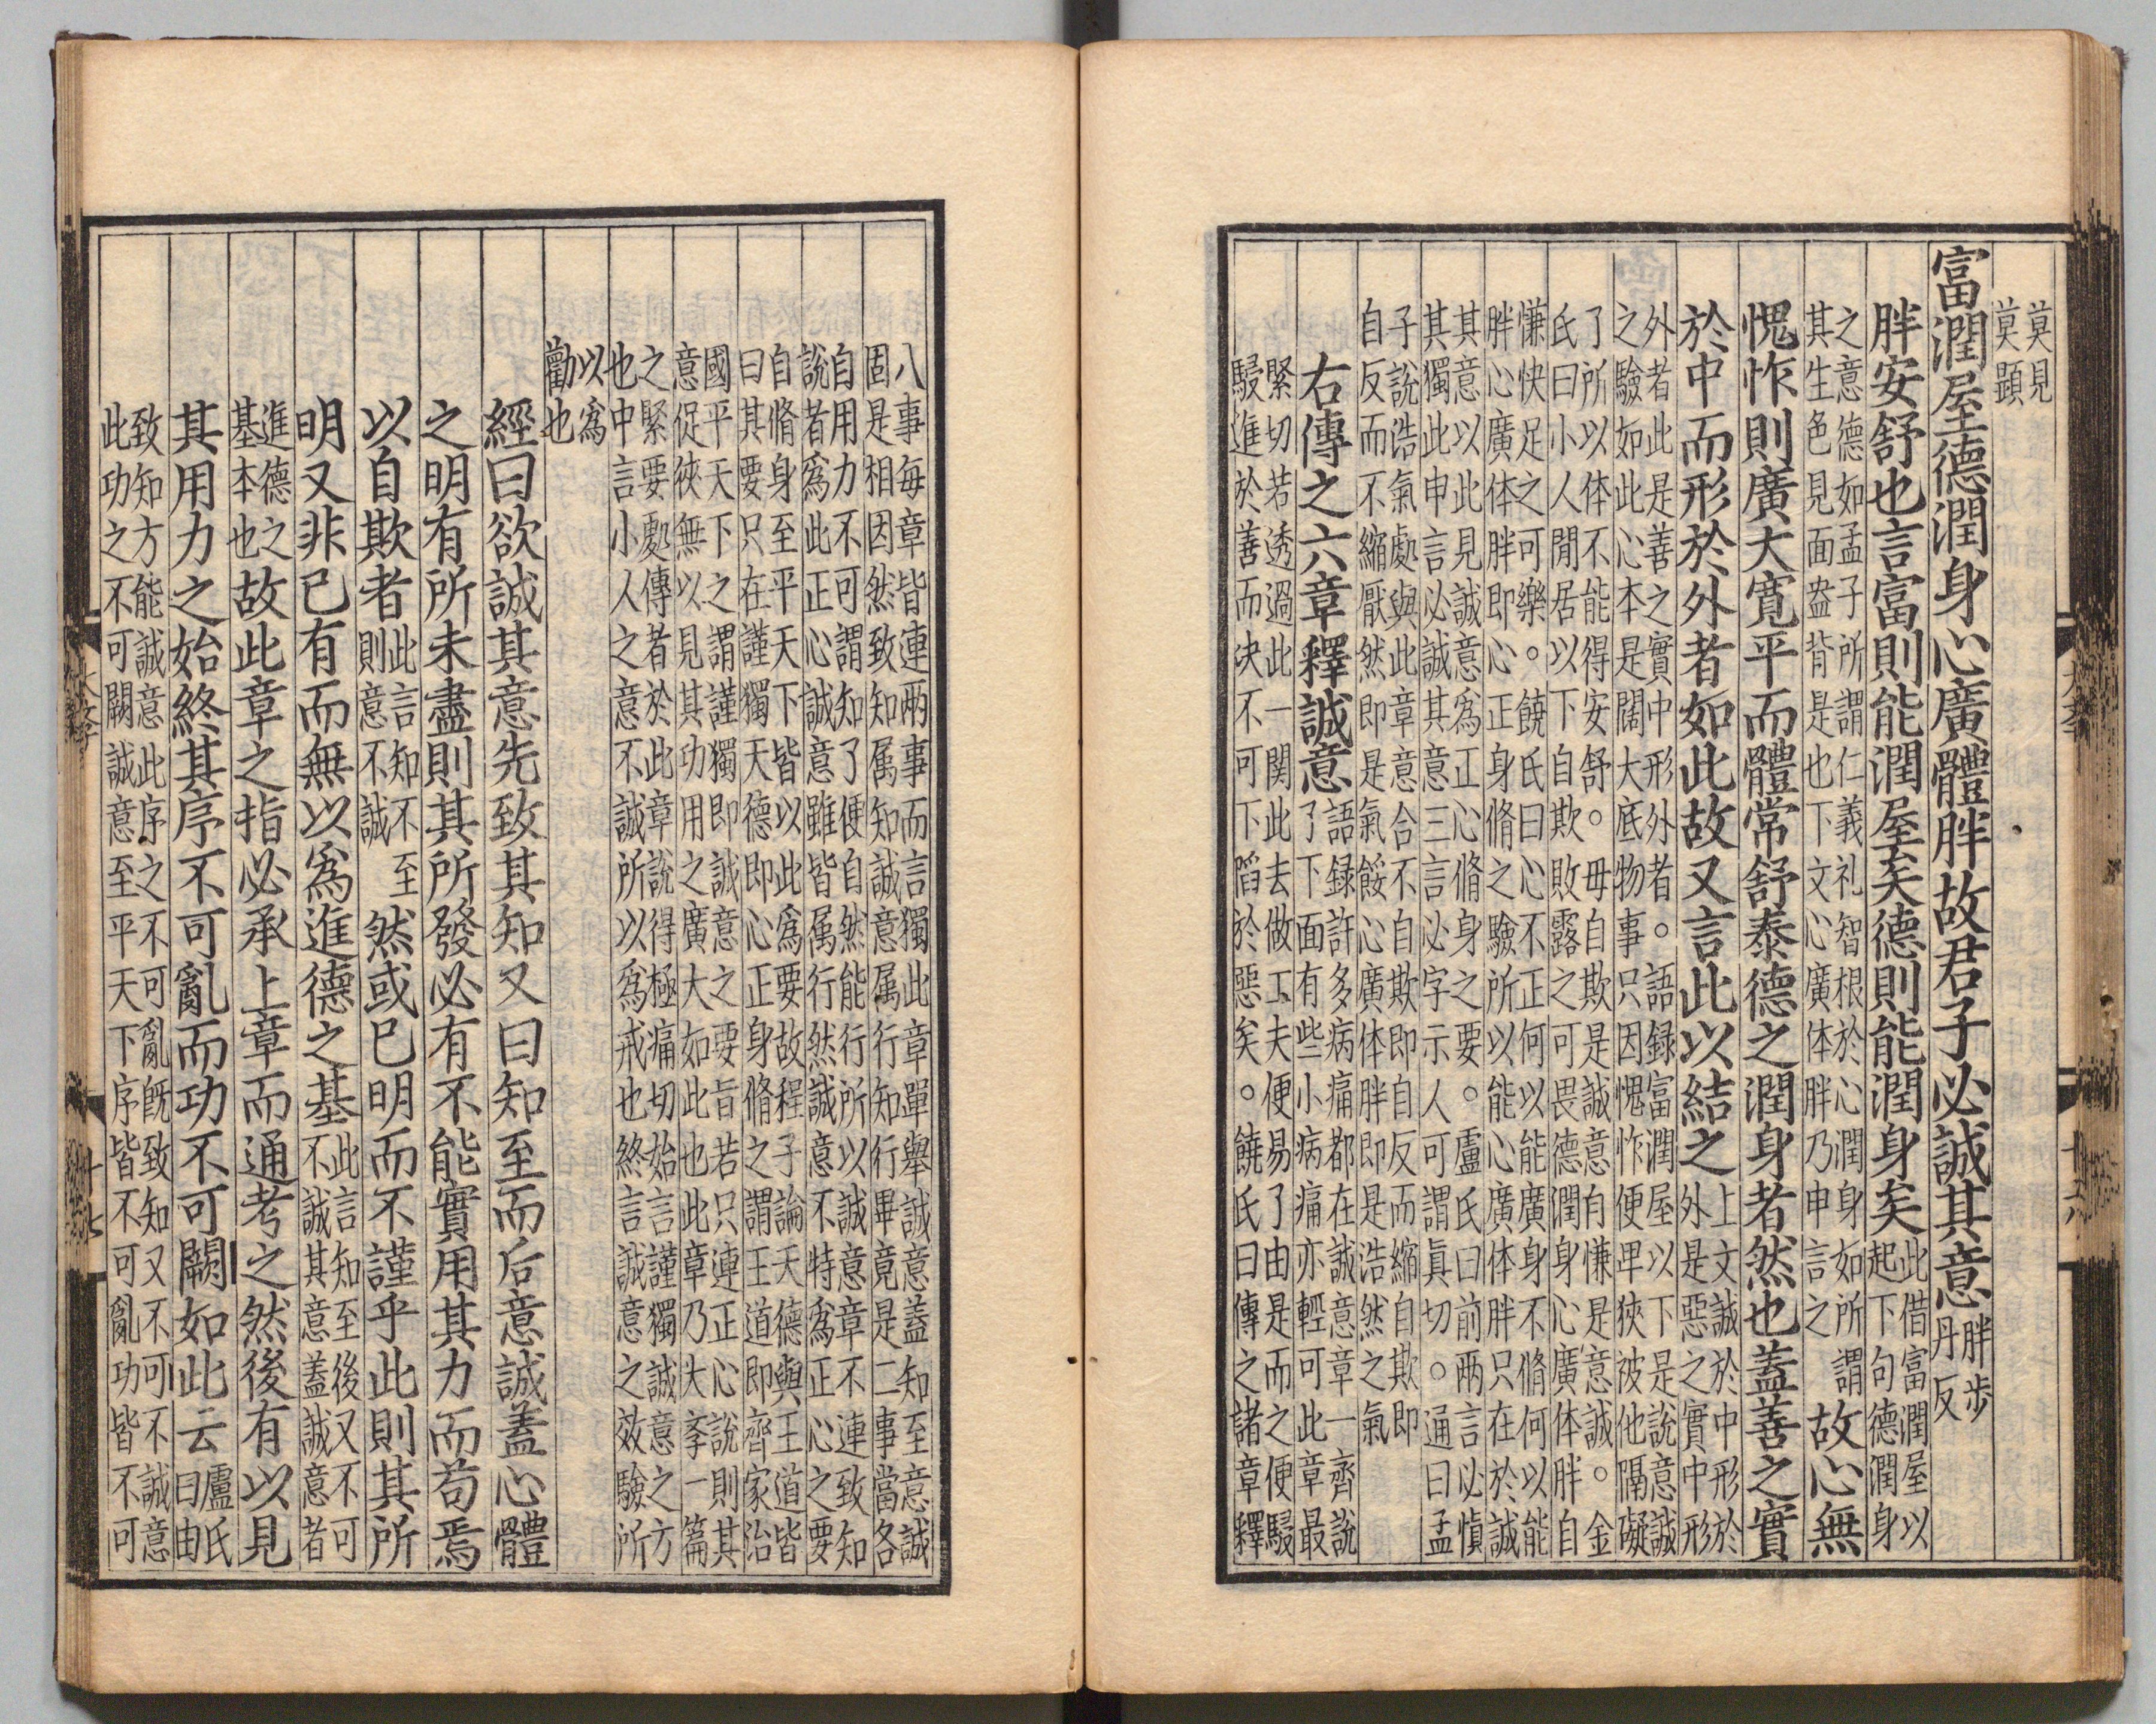 莫見
莫顕
富潤屋德潤身心廣體胖故君子必誠其意胖步
丹反
胖安舒也言富則能潤屋矣德則能潤身矣此借富潤屋以
起下句德潤身
之意德如孟子所謂仁義礼智根於心潤身如所謂
其生色見面盎背是也下文心廣体胖乃申言之
故心無
愧怍則廣大寛平而體常舒泰德之潤身者然也蓋善之實
於中而形於外者如此故又言此以結之上文誠於中形於
外是惡之實中形
外者此是善之實中形外者。語録富潤屋以下是說意誠
之驗如此心本是闊大底物事只因愧怍便卑狹被他隔礙
了所以体不能得安舒。毋自欺是誠意自慊是意誠。金
氏曰小人閒居以下自欺敗露之可畏德潤身心廣体胖自
慊快足之可樂。饒氏曰心不正何以能廣身不脩何以能
胖心廣体胖即心正身脩之驗所以能心廣体胖只在於誠
其意以此見誠意為正心脩身之要。盧氏曰前兩言必慎
其獨此申言必誠其意三言必字示人可謂眞切。通曰孟
子說浩氣處與此章意合不自欺即自反而縮自欺即
自反而不縮厭然即是氣餒心廣体胖即是浩然之氣
右傳之六章釋誠意語録許多病痛都在誠意章一齊說
了下面有些小病痛亦輕可此章最
緊切若透過此一関此去做工夫便易了由是而之便駸
駸進於善而决不可下䧟於惡矣。饒氏曰傳之諸章釋
八事每章皆連兩事而言獨此章單舉誠意蓋知至意誠
固是相因然致知属知誠意属行知行畢竟是二事當各
自用力不可謂知了便自然能行所以誠意章不連致知
說者爲此正心誠意雖皆属行然誠意不特爲正心之要
自脩身至平天下皆以此爲要故程子論天德與王道皆
曰其要只在謹獨天德即心正身脩之謂王道即齊家治
國平天下之謂謹獨即誠意之要旨若只連正心說則其
意促狹無以見其功用之廣大如此也此章乃大学一篇
之緊要處傳者於此章說得極痛切始言謹獨誠意之方
也中言小人之意不誠所以爲戒也終言誠意之效驗所
以爲
勸也
經曰欲誠其意先致其知又曰知至而后意誠蓋心體
之明有所未盡則其所發必有不能實用其力而苟焉
以自欺者此言知不至
則意不誠
然或已明而不謹乎此則其所
明又非已有而無以爲進德之基此言知至後又不可
不誠其意蓋誠意者
進德之
基本也
故此章之指必承上章而通考之然後有以見
其用力之始終其序不可亂而功不可闕如此云盧氏
曰由
致知方能誠意此序之不可亂旣致知又不可不誠意
此功之不可闕誠意至平天下序皆不可亂功皆不可
大学
十六
十七